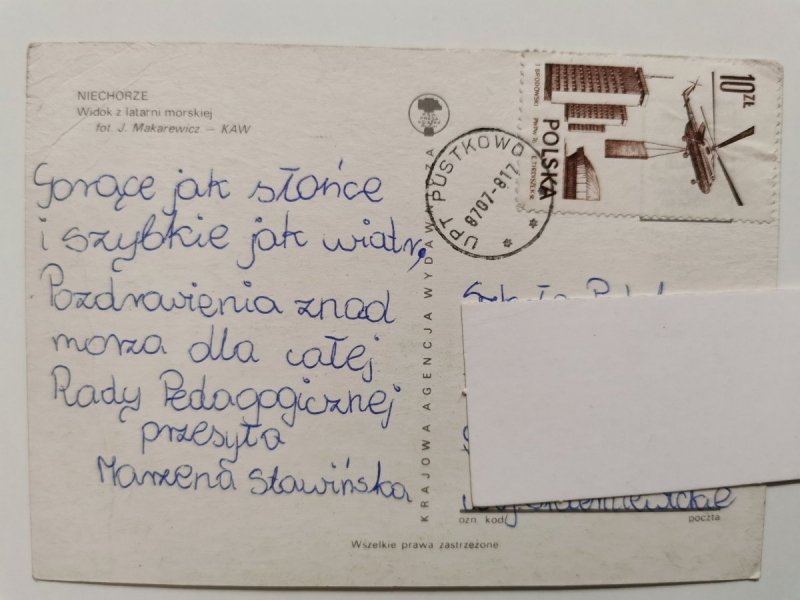 NIECHORZE
Widok z latarni morskiej
fot. J. Makarewicz — KAW
Gorące jak słońce
i szybkie jak wiatr,
Pozdrowienia znad
morza dla całej
Rady Pedagogicznej
przesyła
Marzena Sławińska
KRAJOWA AGENCJA WYDAWNICZA
UPT PUSTKOWO
8707-817
10 ZŁ
POLSKA
Szkoła
ozn. kod
poczta
Wszelkie prawa zastrzeżone